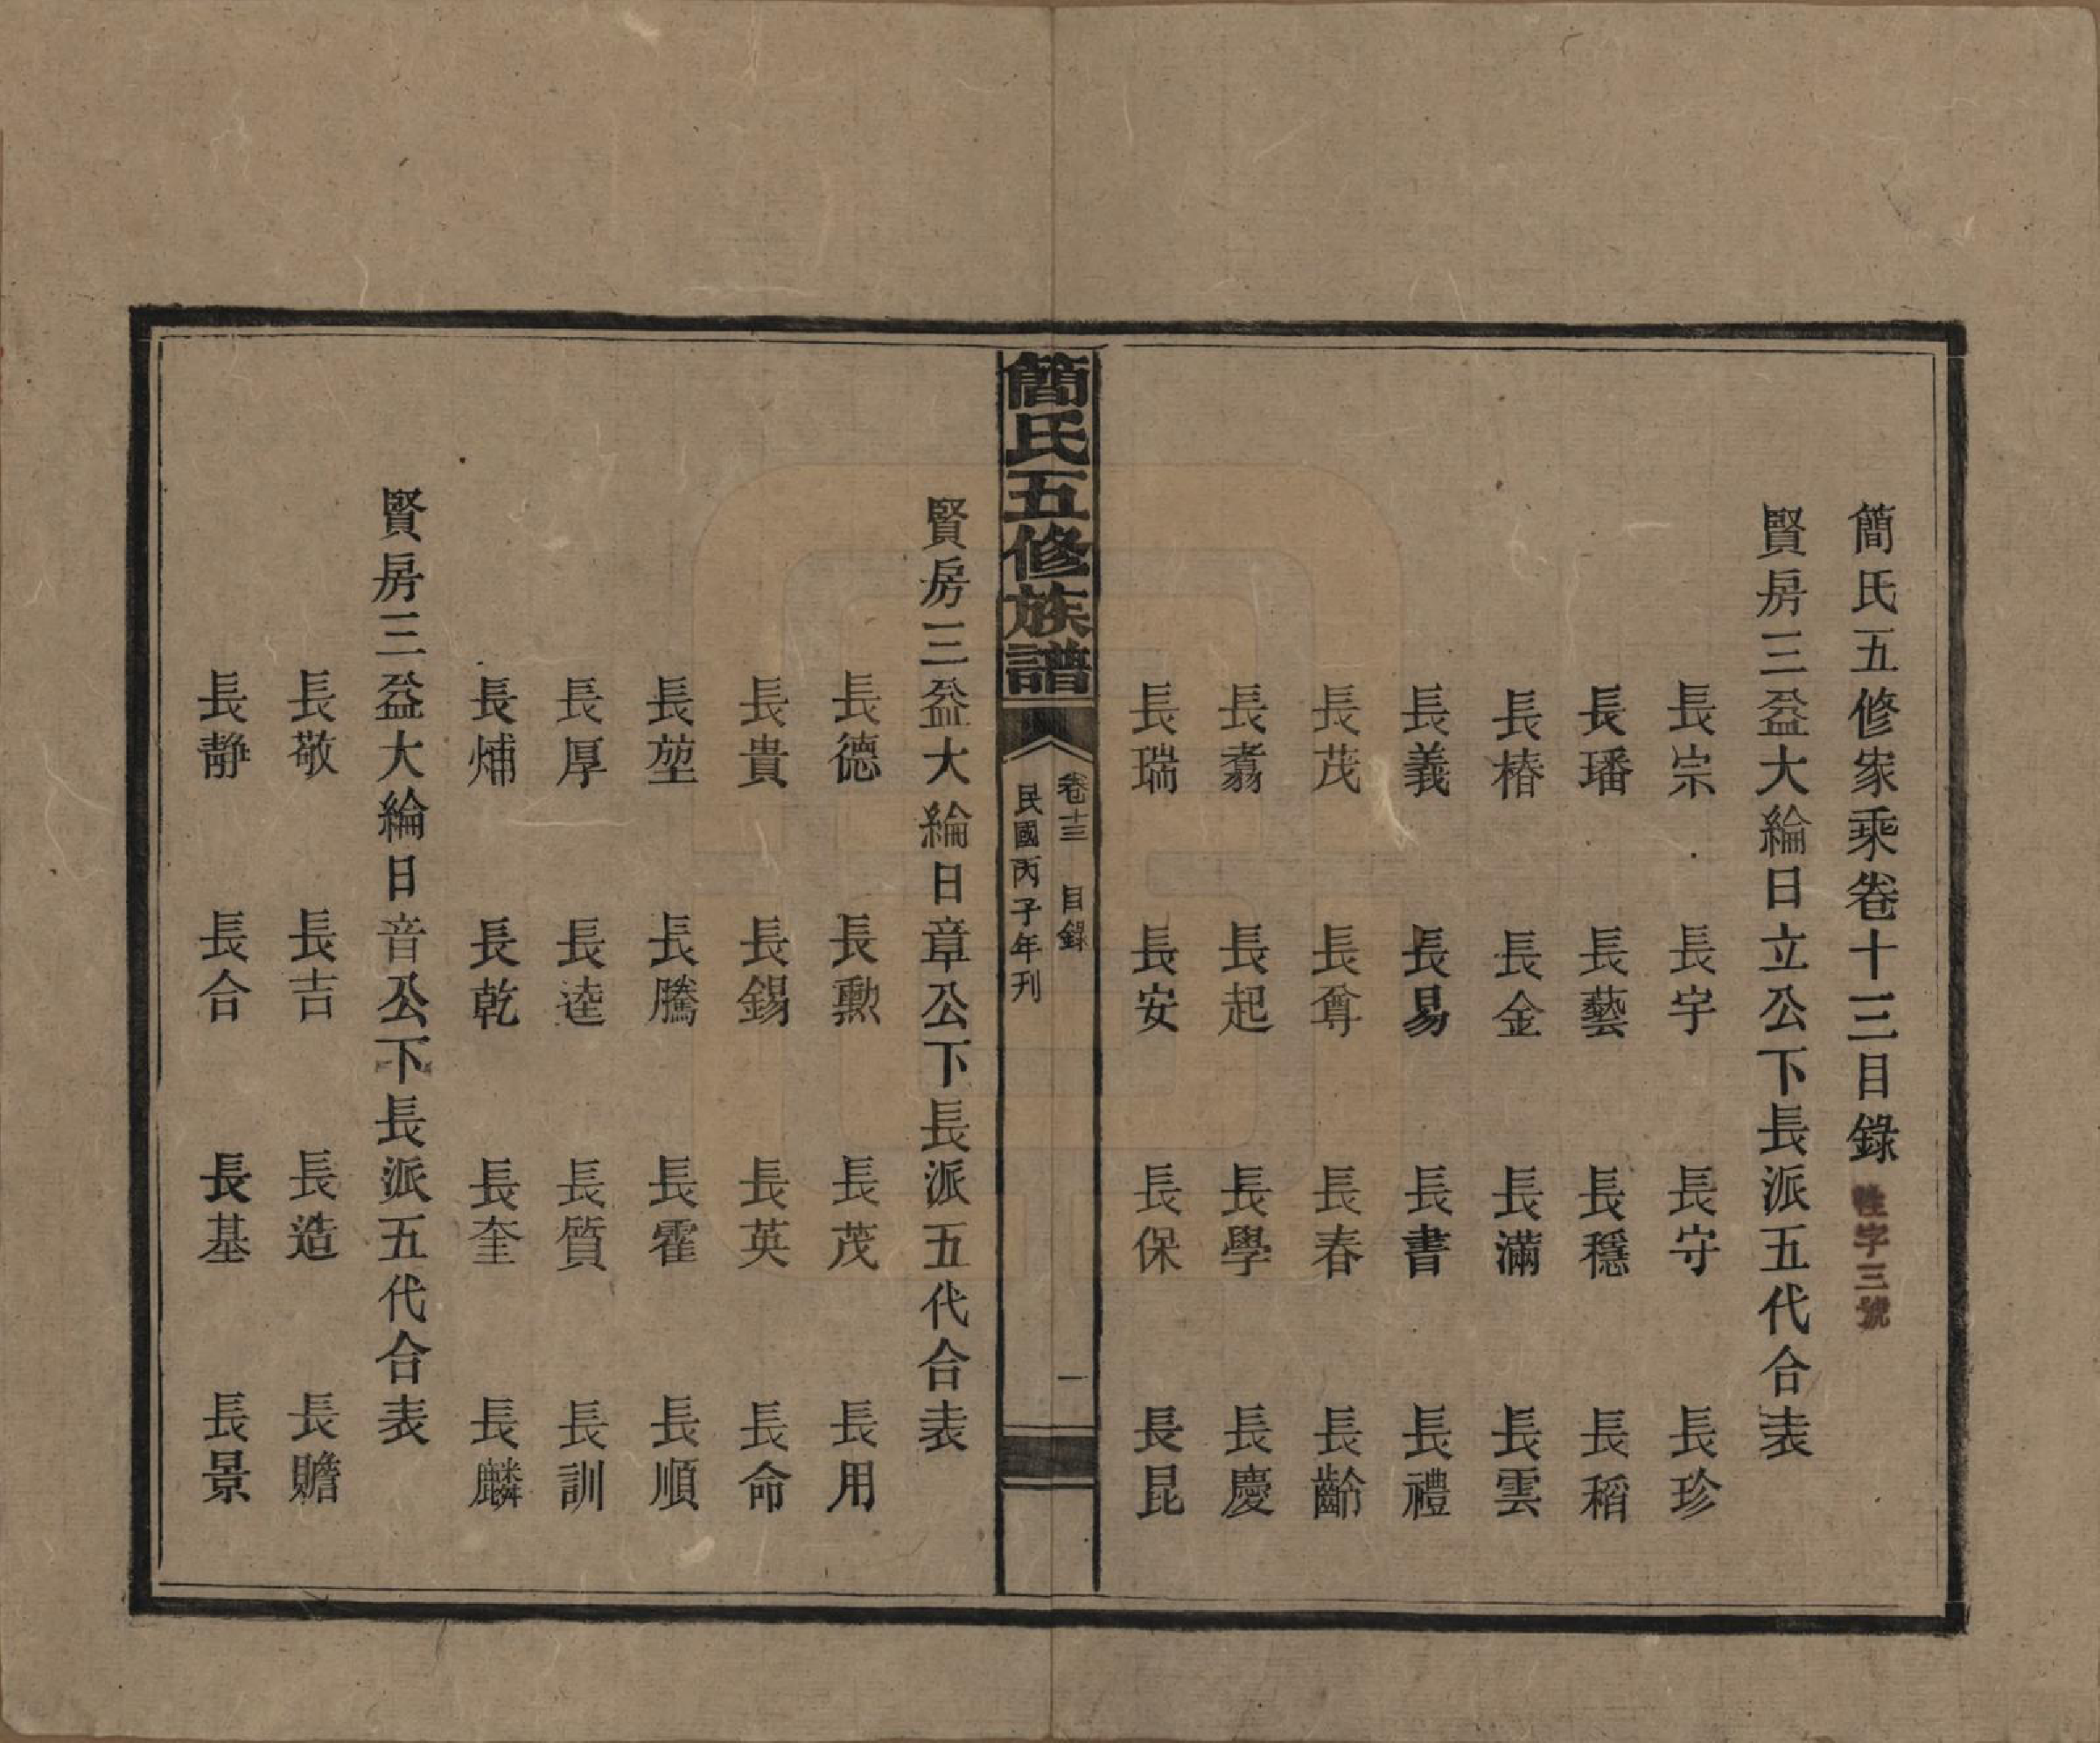 簡氏五修家乘卷十三目錄
字三號
賢房三益大綸日立公下長派五代合表
長宗 長宇 長守 長珍
長璠 長藝 長穩 長稻
長椿 長金 長滿 長雲
長義 長易 長書 長禮
長茂 長尊 長春 長齡
長翥 長起 長學 長慶
長瑞 長安 長保 長昆
簡氏五修族譜
卷十三 目錄 一
民國丙子年刊
賢房三益大綸日章公下長派五代合表
長德 長勲 長茂 長用
長貴 長錫 長英 長命
長堃 長騰 長霍 長順
長厚 長逵 長質 長訓
長煏 長乾 長奎 長麟
賢房三益大綸日音公下長派五代合表
長敬 長吉 長造 長贍
長靜 長合 長基 長景